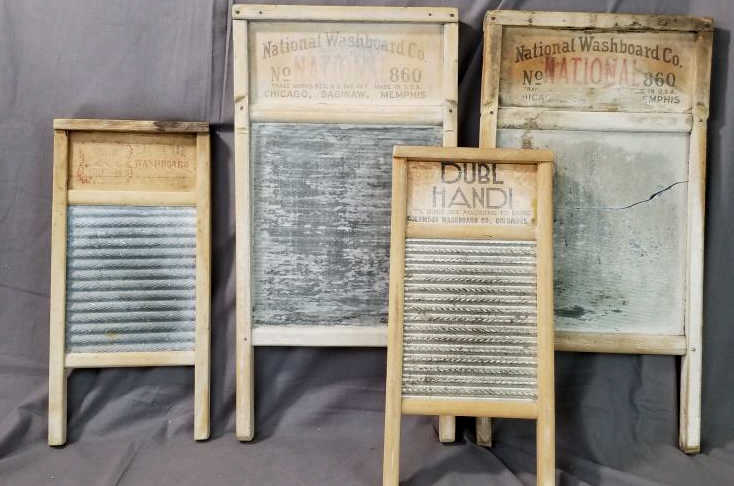 WASHBOARD
National Washboard Co.
No NATIONAL 860
TRADE MARKS REG. U.S. PAT. OFF. MADE IN U.S.A.
CHICAGO, SAGINAW, MEMPHIS
National Washboard Co.
No NATIONAL 860
TRA IN U.S.A.
CHICA EMPHIS
DUBL
HANDI
COLUMBUS WASHBOARD CO. COLUMBUS,